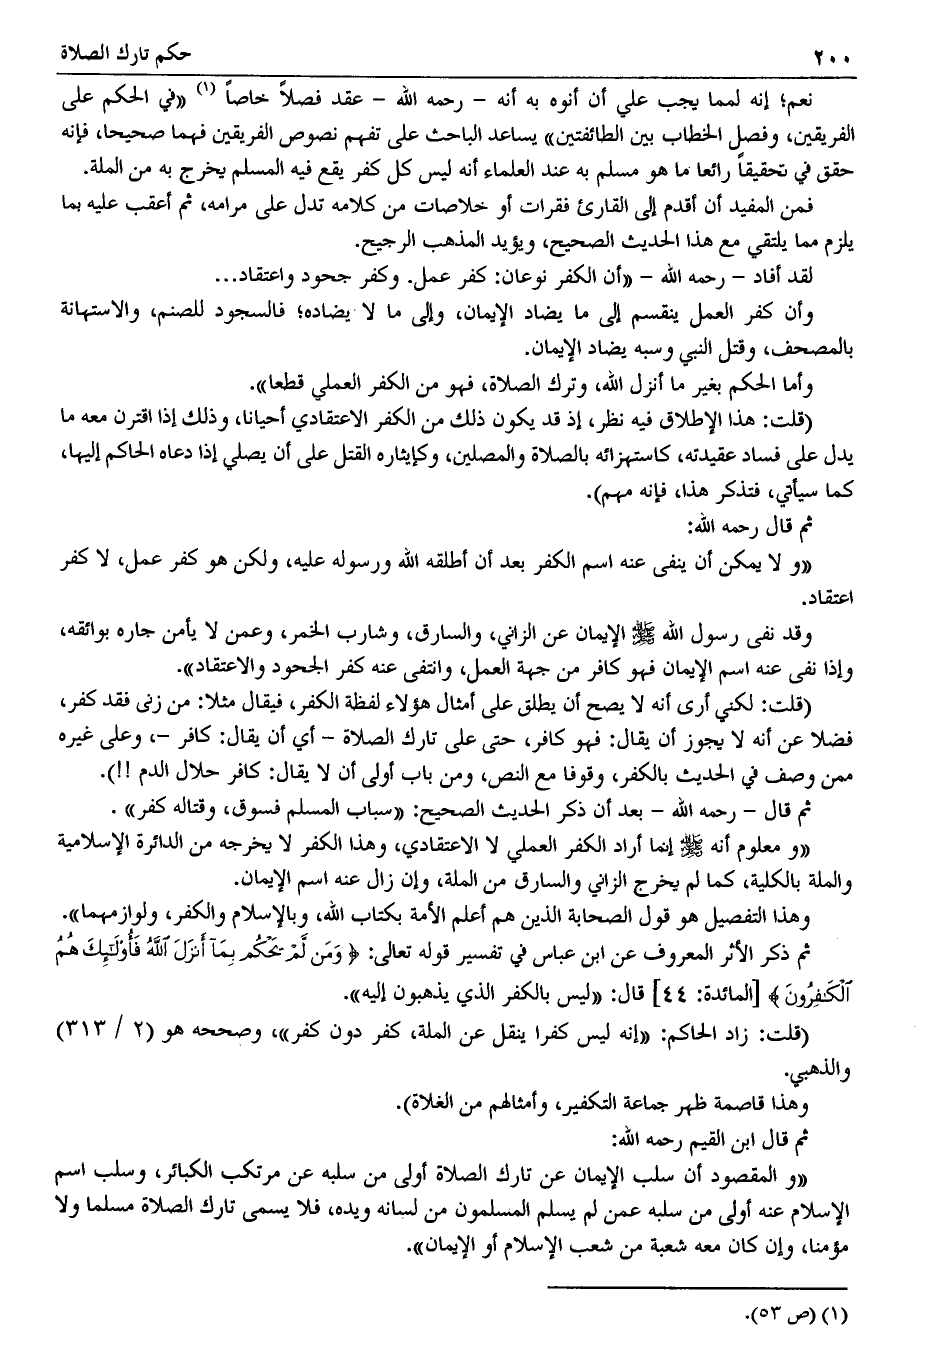 ٢٠٠ حكم تارك الصلاة
نعم؛ إنه لمما يجب علي أن أنوه به أنه – رحمه الله – عقد فصلاً خاصاً (١) «في الحكم على
الفريقين، وفصل الخطاب بين الطائفتين» يساعد الباحث على تفهم نصوص الفريقين فهما صحيحا، فإنه
حقق في تحقيقاً رائعا ما هو مسلم به عند العلماء أنه ليس كل كفر يقع فيه المسلم يخرج به من الملة.
فمن المفيد أن أقدم إلى القارئ فقرات أو خلاصات من كلامه تدل على مرامه، ثم أعقب عليه بما
يلزم مما يلتقي مع هذا الحديث الصحيح، ويؤيد المذهب الرجيح.
لقد أفاد – رحمه الله – «أن الكفر نوعان: كفر عمل. وكفر جحود واعتقاد...
وأن كفر العمل ينقسم إلى ما يضاد الإيمان، وإلى ما لا يضاده؛ فالسجود للصنم، والاستهانة
بالمصحف، وقتل النبي وسبه يضاد الإيمان.
وأما الحكم بغير ما أنزل الله، وترك الصلاة، فهو من الكفر العملي قطعا».
(قلت: هذا الإطلاق فيه نظر، إذ قد يكون ذلك من الكفر الاعتقادي أحيانا، وذلك إذا اقترن معه ما
يدل على فساد عقيدته، كاستهزائه بالصلاة والمصلين، وكإيثاره القتل على أن يصلي إذا دعاه الحاكم إليها،
كما سيأتي، فتذكر هذا، فإنه مهم).
ثم قال رحمه الله:
«و لا يمكن أن ينفى عنه اسم الكفر بعد أن أطلقه الله ورسوله عليه، ولكن هو كفر عمل، لا كفر
اعتقاد.
وقد نفى رسول الله ﷺ الإيمان عن الزاني، والسارق، وشارب الخمر، وعمن لا يأمن جاره بوائقه،
وإذا نفى عنه اسم الإيمان فهو كافر من جهة العمل، وانتفى عنه كفر الجحود والاعتقاد».
(قلت: لكني أرى أنه لا يصح أن يطلق على أمثال هؤلاء لفظة الكفر، فيقال مثلا: من زنى فقد كفر،
فضلا عن أنه لا يجوز أن يقال: فهو كافر، حتى على تارك الصلاة – أي أن يقال: كافر –، وعلى غيره
ممن وصف في الحديث بالكفر، وقوفا مع النص، ومن باب أولى أن لا يقال: كافر حلال الدم !!).
ثم قال – رحمه الله – بعد أن ذكر الحديث الصحيح: «سباب المسلم فسوق، وقتاله كفر» .
«و معلوم أنه ﷺ إنما أراد الكفر العملي لا الاعتقادي، وهذا الكفر لا يخرجه من الدائرة الإسلامية
والملة بالكلية، كما لم يخرج الزاني والسارق من الملة، وإن زال عنه اسم الإيمان.
وهذا التفصيل هو قول الصحابة الذين هم أعلم الأمة بكتاب الله، وبالإسلام والكفر، ولوازمهما».
ثم ذكر الأثر المعروف عن ابن عباس في تفسير قوله تعالى: ﴿ وَمَن لَّمْ يَحْكُم بِمَآ أَنزَلَ ٱللَّهُ فَأُوْلَٰٓئِكَ هُمُ
ٱلْكَٰفِرُونَ ﴾ [المائدة: ٤٤] قال: «ليس بالكفر الذي يذهبون إليه».
(قلت: زاد الحاكم: «إنه ليس كفرا ينقل عن الملة، كفر دون كفر»، وصححه هو (٢ / ٣١٣)
والذهبي.
وهذا قاصمة ظهر جماعة التكفير، وأمثالهم من الغلاة).
ثم قال ابن القيم رحمه الله:
«و المقصود أن سلب الإيمان عن تارك الصلاة أولى من سلبه عن مرتكب الكبائر، وسلب اسم
الإسلام عنه أولى من سلبه عمن لم يسلم المسلمون من لسانه ويده، فلا يسمى تارك الصلاة مسلما ولا
مؤمنا، وإن كان معه شعبة من شعب الإسلام أو الإيمان».
(١) (ص ٥٣).